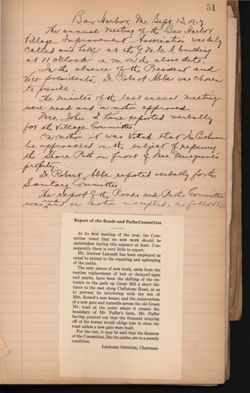 51
Bar Harbor, Me. Sept. 13, 1917.
The annual meeting of the Bar Harbor
Village Improvement Association was duly
called and held at the Y.M.C.A. building
at 11 o'clock a.m. on the above date.
In the absence of the President and
Vice presidents, Dr. Robert Abbe was chosen
to preside.
The minutes of the last annual meeting
were read and on motion approved.
Mrs. John I. Kane reported verbally
for the Village Committee.
On motion it was voted that
be approached on the subject of repairing
the Shore Path in front of Mrs.
property.
Dr. Robert Abbe reported verbally for the
Sanitary Committee.
The report of the Roads and Paths Committee
was read on motion accepted, as follows:
Report of the Roads and Paths Committee
At its first meeting of the year, the Com-
mittee voted that no new work should be
undertaken during this season at least. Con-
sequently there is very little to report.
Mr. Andrew Liscomb has been employed as
usual to attend to the repairing and upkeeping
of the paths.
The only pieces of new work, aside from the
routine replacement of lost or decayed signs
and marks, have been the shifting of the en-
trance to the path up Great Hill a short dis-
tance to the east along Cleftstone Road, so as
to prevent its interfering with the site of
Mrs. Rowell's new house; and the construction
of a new gate and turnstile across the old Green
Mt. road at the point where it crosses the
boundary of Mr. Puffer's farm, Mr. Puffer
having pointed out that the frequent straying
off of his horses would oblige him to close the
road unless a new gate were built.
For the rest, it may be said that the finances
of the Committee, like the paths, are in a sound
condition.
Leonard Opdycke, Chairman.